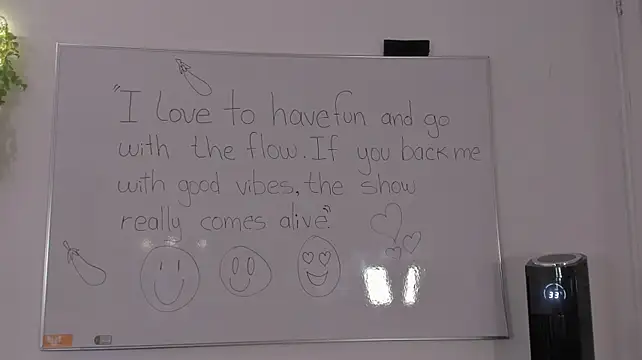 "I love to have fun and go
with the flow. If you back me
with good vibes, the show
really comes alive"
33°